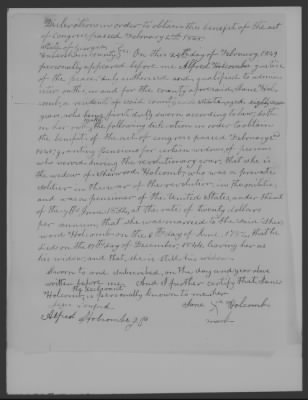 Declaration in order to obtain the benefit of the act
of Congress passed February 2nd 1848.
State of Georgia
Habersham County On this 24th day of February 1849
personally appeared before me Alfred Holcomb justice
of the peace duly authorised and qualified to admin
ister oaths in and for the county aforesaid Jane Hol
comb, a resident of said county and state aged
years, who being first duly sworn according to law, doth
on her oath make the following declaration in order to obtain
the benefit of the act of congress passed February 2nd
1848, granting pensions for certain widows of persons
who served during the revolutionary war, that she is
the widow of Sherwood Holcomb, who was a private
soldier in the war of the revolution, in the militia,
and was a pensioner of the United States, under the act
of the 7th June 1832, at the rate of twenty dollars
per annum, that she was married to the said Sher
wood Holcomb on the 6th day of June, that he
died on the 17th day of December, 1844, leaving her as
his widow, and that she is still his widow.
Sworn to and subscribed, on the day and year above
written before me. And I further certify that Jane
Holcomb, the declarant is personally known to me
Jane X Holcomb
Alfred Holcombe J.P. mark